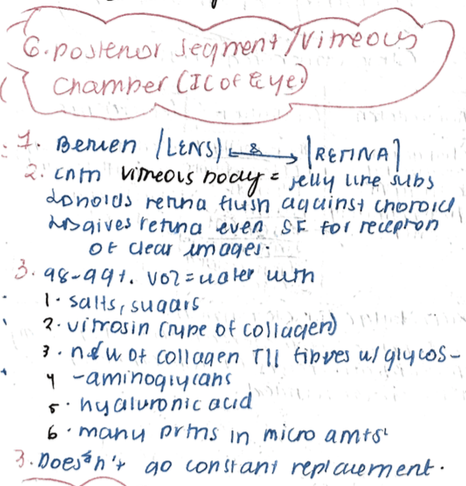 6. posterior segment/vitreous
chamber (IC of Eye)
1. Between /LENS/ & /RETINA/
2. cntn vitreous body = jelly like subs
holds retina flush against choroid
gives retina even SF for reception
of clear images.
3. 98-99%. vol = water with
1. salts, sugars
2. vitrosin (type of collagen)
3. n/w of collagen TII fibres w/ glycos-
4 -aminoglycans
5. hyaluronic acid
6. many prtns in micro amts
3. Doesn't go constant replacement.